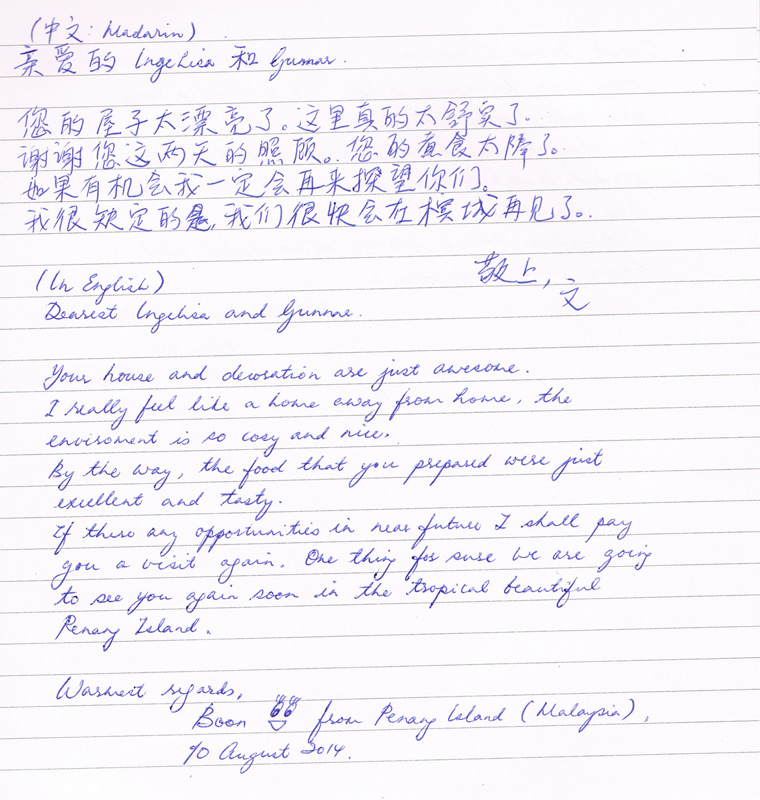 (中文: Madarin)
亲爱的 Ingelisa 和 Gunnar.
您的屋子太漂亮了。这里真的太舒实了.
谢谢您这两天的照顾。您的煮食太棒了。
如果有机会我一定会再来探望你们。
我很缺定的是, 我们很快会在槟城再见了.
敬上,
文
(In English)
Dearest Ingelisa and Gunnne.
Your house and decoration are just awesome.
I really feel like a home away from home, the
enviroment is so cosy and nice.
By the way, the food that you prepared were just
excellent and tasty.
If there any opportunities in near future I shall pay
you a visit again. One thing for sure we are going
to see you again soon in the tropical beautiful
Penang Island.
Warmest regards,
Boon from Penang Island (Malaysia),
10 August 2014.